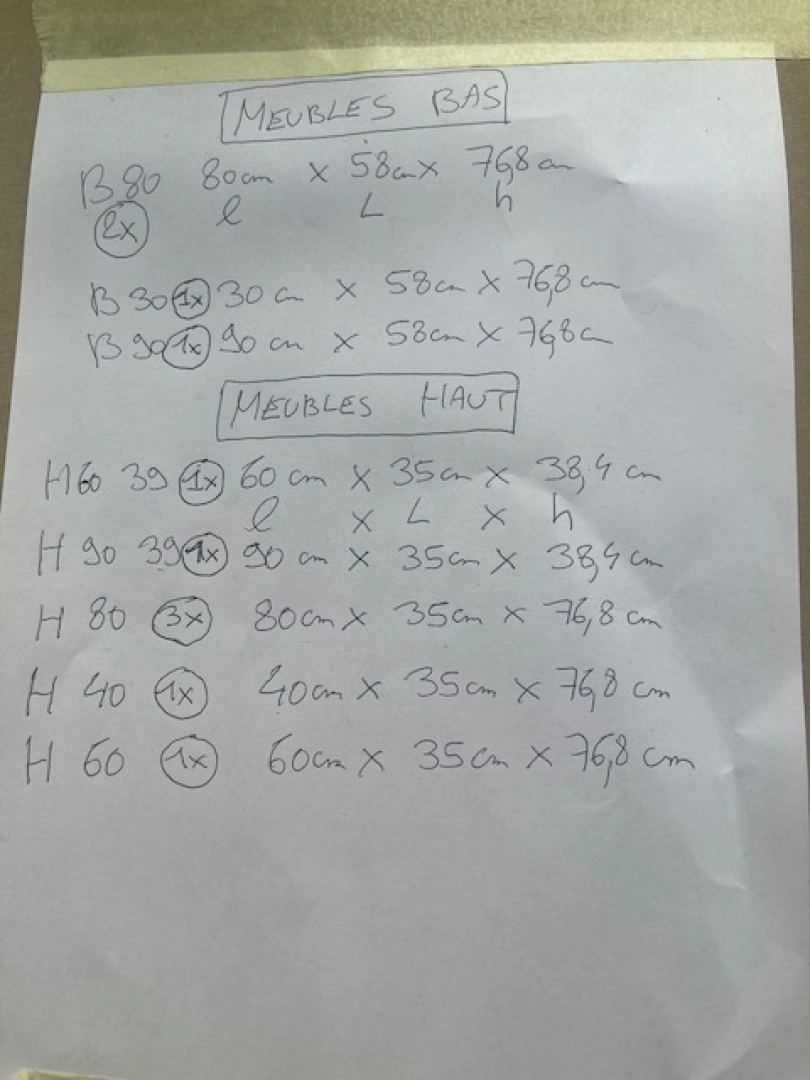 MEUBLES BAS
B 80 80cm x 58cm x 76,8 cm
2x l L h
B 30 1x 30 cm x 58cm x 76,8 cm
B 90 1x 90 cm x 58cm x 76,8 cm
MEUBLES HAUT
H60 39 1x 60 cm x 35cm x 38,4 cm
l x L x h
H 90 39 1x 90 cm x 35cm x 38,4 cm
H 80 3x 80cm x 35cm x 76,8 cm
H 40 1x 40cm x 35cm x 76,8 cm
H 60 1x 60cm x 35cm x 76,8 cm